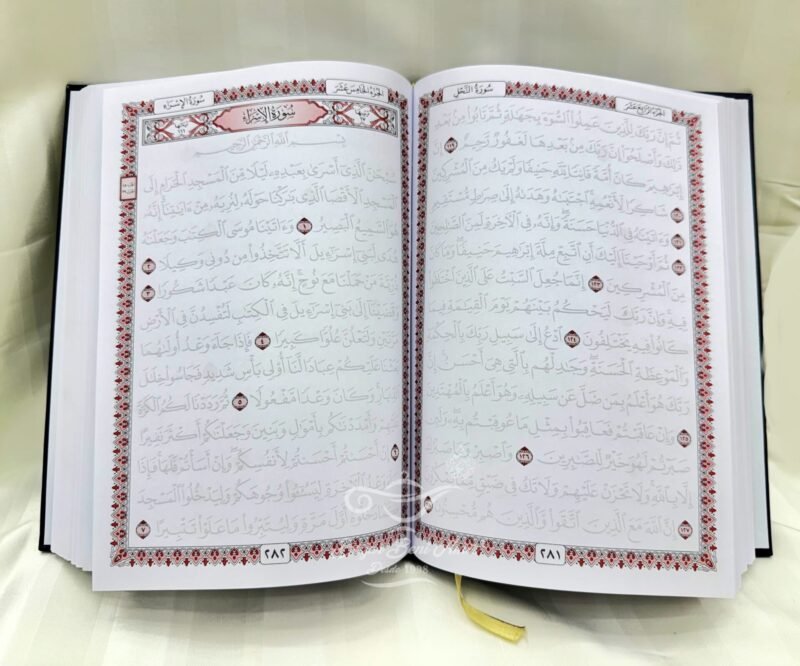 سُورَةُ النَّحْلِ
الجُزْءُ الرَّابِعَ عَشَرَ
ثُمَّ إِنَّ رَبَّكَ لِلَّذِينَ عَمِلُوا۟ ٱلسُّوٓءَ بِجَهَٰلَةٍ ثُمَّ تَابُوا۟ مِنۢ بَعْدِ
ذَٰلِكَ وَأَصْلَحُوٓا۟ إِنَّ رَبَّكَ مِنۢ بَعْدِهَا لَغَفُورٌ رَّحِيمٌ ١١٩
إِبْرَٰهِيمَ كَانَ أُمَّةً قَانِتًا لِّلَّهِ حَنِيفًا وَلَمْ يَكُ مِنَ ٱلْمُشْرِكِينَ
١٢٠ شَاكِرًا لِّأَنْعُمِهِ ٱجْتَبَىٰهُ وَهَدَىٰهُ إِلَىٰ صِرَٰطٍ مُّسْتَقِيمٍ
١٢١ وَءَاتَيْنَٰهُ فِى ٱلدُّنْيَا حَسَنَةً وَإِنَّهُۥ فِى ٱلْءَاخِرَةِ لَمِنَ ٱلصَّٰلِحِينَ
١٢٢ ثُمَّ أَوْحَيْنَآ إِلَيْكَ أَنِ ٱتَّبِعْ مِلَّةَ إِبْرَٰهِيمَ حَنِيفًا وَمَا كَانَ
مِنَ ٱلْمُشْرِكِينَ ١٢٣ إِنَّمَا جُعِلَ ٱلسَّبْتُ عَلَى ٱلَّذِينَ ٱخْتَلَفُوا۟
فِيهِ وَإِنَّ رَبَّكَ لَيَحْكُمُ بَيْنَهُمْ يَوْمَ ٱلْقِيَٰمَةِ فِيمَا
كَانُوا۟ فِيهِ يَخْتَلِفُونَ ١٢٤ ٱدْعُ إِلَىٰ سَبِيلِ رَبِّكَ بِٱلْحِكْمَةِ
وَٱلْمَوْعِظَةِ ٱلْحَسَنَةِ وَجَٰدِلْهُم بِٱلَّتِى هِىَ أَحْسَنُ إِنَّ
رَبَّكَ هُوَ أَعْلَمُ بِمَن ضَلَّ عَن سَبِيلِهِۦ وَهُوَ أَعْلَمُ بِٱلْمُهْتَدِينَ
١٢٥ وَإِنْ عَاقَبْتُمْ فَعَاقِبُوا۟ بِمِثْلِ مَا عُوقِبْتُم بِهِۦ وَلَئِن
صَبَرْتُمْ لَهُوَ خَيْرٌ لِّلصَّٰبِرِينَ ١٢٦ وَٱصْبِرْ وَمَا صَبْرُكَ
إِلَّا بِٱللَّهِ وَلَا تَحْزَنْ عَلَيْهِمْ وَلَا تَكُ فِى ضَيْقٍ مِّمَّا
١٢٧ إِنَّ ٱللَّهَ مَعَ ٱلَّذِينَ ٱتَّقَوا۟ وَّٱلَّذِينَ هُم مُّحْسِنُونَ
٢٨١
الجُزْءُ الخَامِسَ عَشَرَ
سُورَةُ الإِسْرَاءِ
سُورَةُ الإِسْرَاءِ
بِسْمِ ٱللَّهِ ٱلرَّحْمَٰنِ ٱلرَّحِيمِ
سُبْحَٰنَ ٱلَّذِىٓ أَسْرَىٰ بِعَبْدِهِۦ لَيْلًا مِّنَ ٱلْمَسْجِدِ ٱلْحَرَامِ إِلَى
ٱلْمَسْجِدِ ٱلْأَقْصَا ٱلَّذِى بَٰرَكْنَا حَوْلَهُۥ لِنُرِيَهُۥ مِنْ ءَايَٰتِنَآ إِنَّهُۥ
هُوَ ٱلسَّمِيعُ ٱلْبَصِيرُ ١ وَءَاتَيْنَا مُوسَى ٱلْكِتَٰبَ وَجَعَلْنَٰهُ
هُدًى لِّبَنِىٓ إِسْرَٰٓءِيلَ أَلَّا تَتَّخِذُوا۟ مِن دُونِى وَكِيلًا ٢
ذُرِّيَّةَ مَنْ حَمَلْنَا مَعَ نُوحٍ إِنَّهُۥ كَانَ عَبْدًا شَكُورًا ٣
وَقَضَيْنَآ إِلَىٰ بَنِىٓ إِسْرَٰٓءِيلَ فِى ٱلْكِتَٰبِ لَتُفْسِدُنَّ فِى ٱلْأَرْضِ
مَرَّتَيْنِ وَلَتَعْلُنَّ عُلُوًّا كَبِيرًا ٤ فَإِذَا جَآءَ وَعْدُ أُولَىٰهُمَا
بَعَثْنَا عَلَيْكُمْ عِبَادًا لَّنَآ أُو۟لِى بَأْسٍ شَدِيدٍ فَجَاسُوا۟ خِلَٰلَ
ٱلدِّيَارِ وَكَانَ وَعْدًا مَّفْعُولًا ٥ ثُمَّ رَدَدْنَا لَكُمُ ٱلْكَرَّةَ
عَلَيْهِمْ وَأَمْدَدْنَٰكُم بِأَمْوَٰلٍ وَبَنِينَ وَجَعَلْنَٰكُمْ أَكْثَرَ نَفِيرًا
٦ إِنْ أَحْسَنتُمْ أَحْسَنتُمْ لِأَنفُسِكُمْ وَإِنْ أَسَأْتُمْ فَلَهَا فَإِذَا
جَآءَ وَعْدُ ٱلْءَاخِرَةِ لِيَسُۥٓـُٔوا۟ وُجُوهَكُمْ وَلِيَدْخُلُوا۟ ٱلْمَسْجِدَ
كَمَا دَخَلُوهُ أَوَّلَ مَرَّةٍ وَلِيُتَبِّرُوا۟ مَا عَلَوْا۟ تَتْبِيرًا ٧
٢٨٢